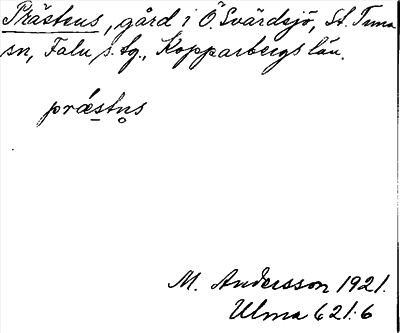 Prästens, gård i Ö. Svärdsjö, St. Tuna
sn, Falu s. tg., Kopparbergs län.
prǽstn̥s
M. Andersson 1921.
Ulma 621:6